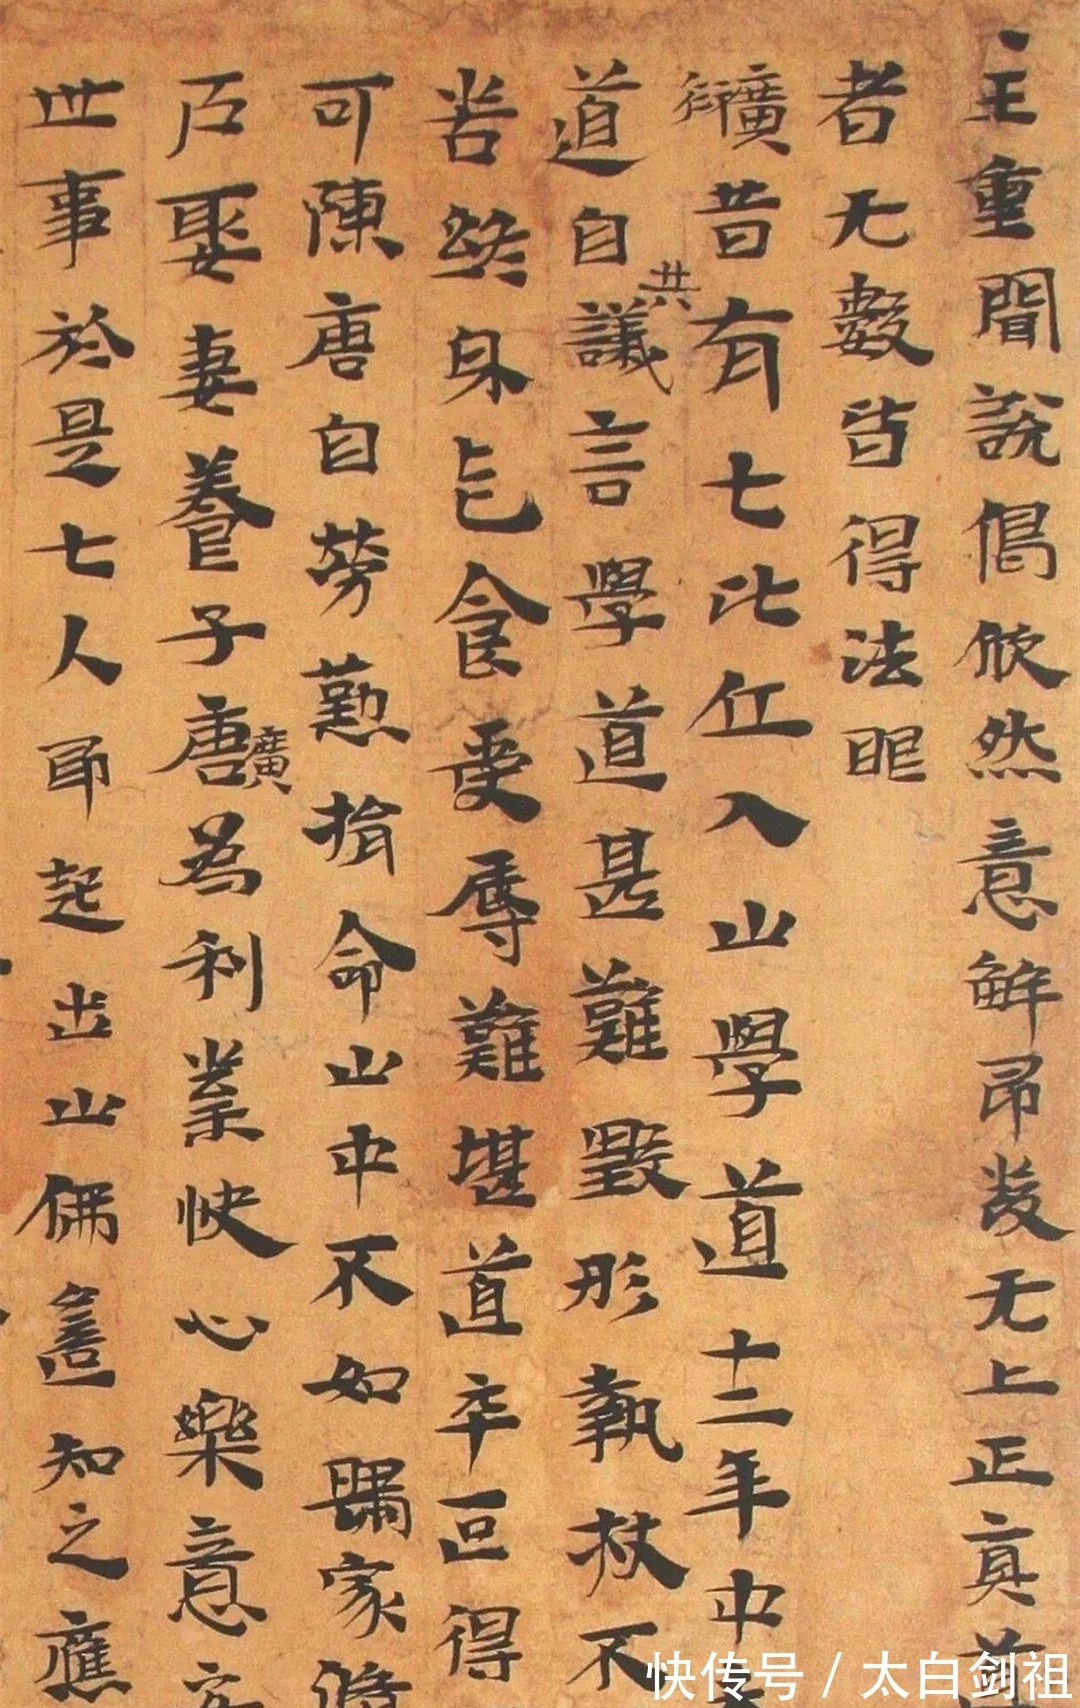 主重聞說偈欣然意解即發无上正真
者无數皆得法眼
廣衍昔有七比丘入山學道十二年中
道自共議言學道甚難毀形執杖不
苦終身乞食受辱難堪道卒叵得
可陳唐自勞懃捐命山中不如歸家
戶娶妻養子唐廣為利業快心樂意
世事於是七人即起出山佛遙知之應
快传号 / 太白剑祖